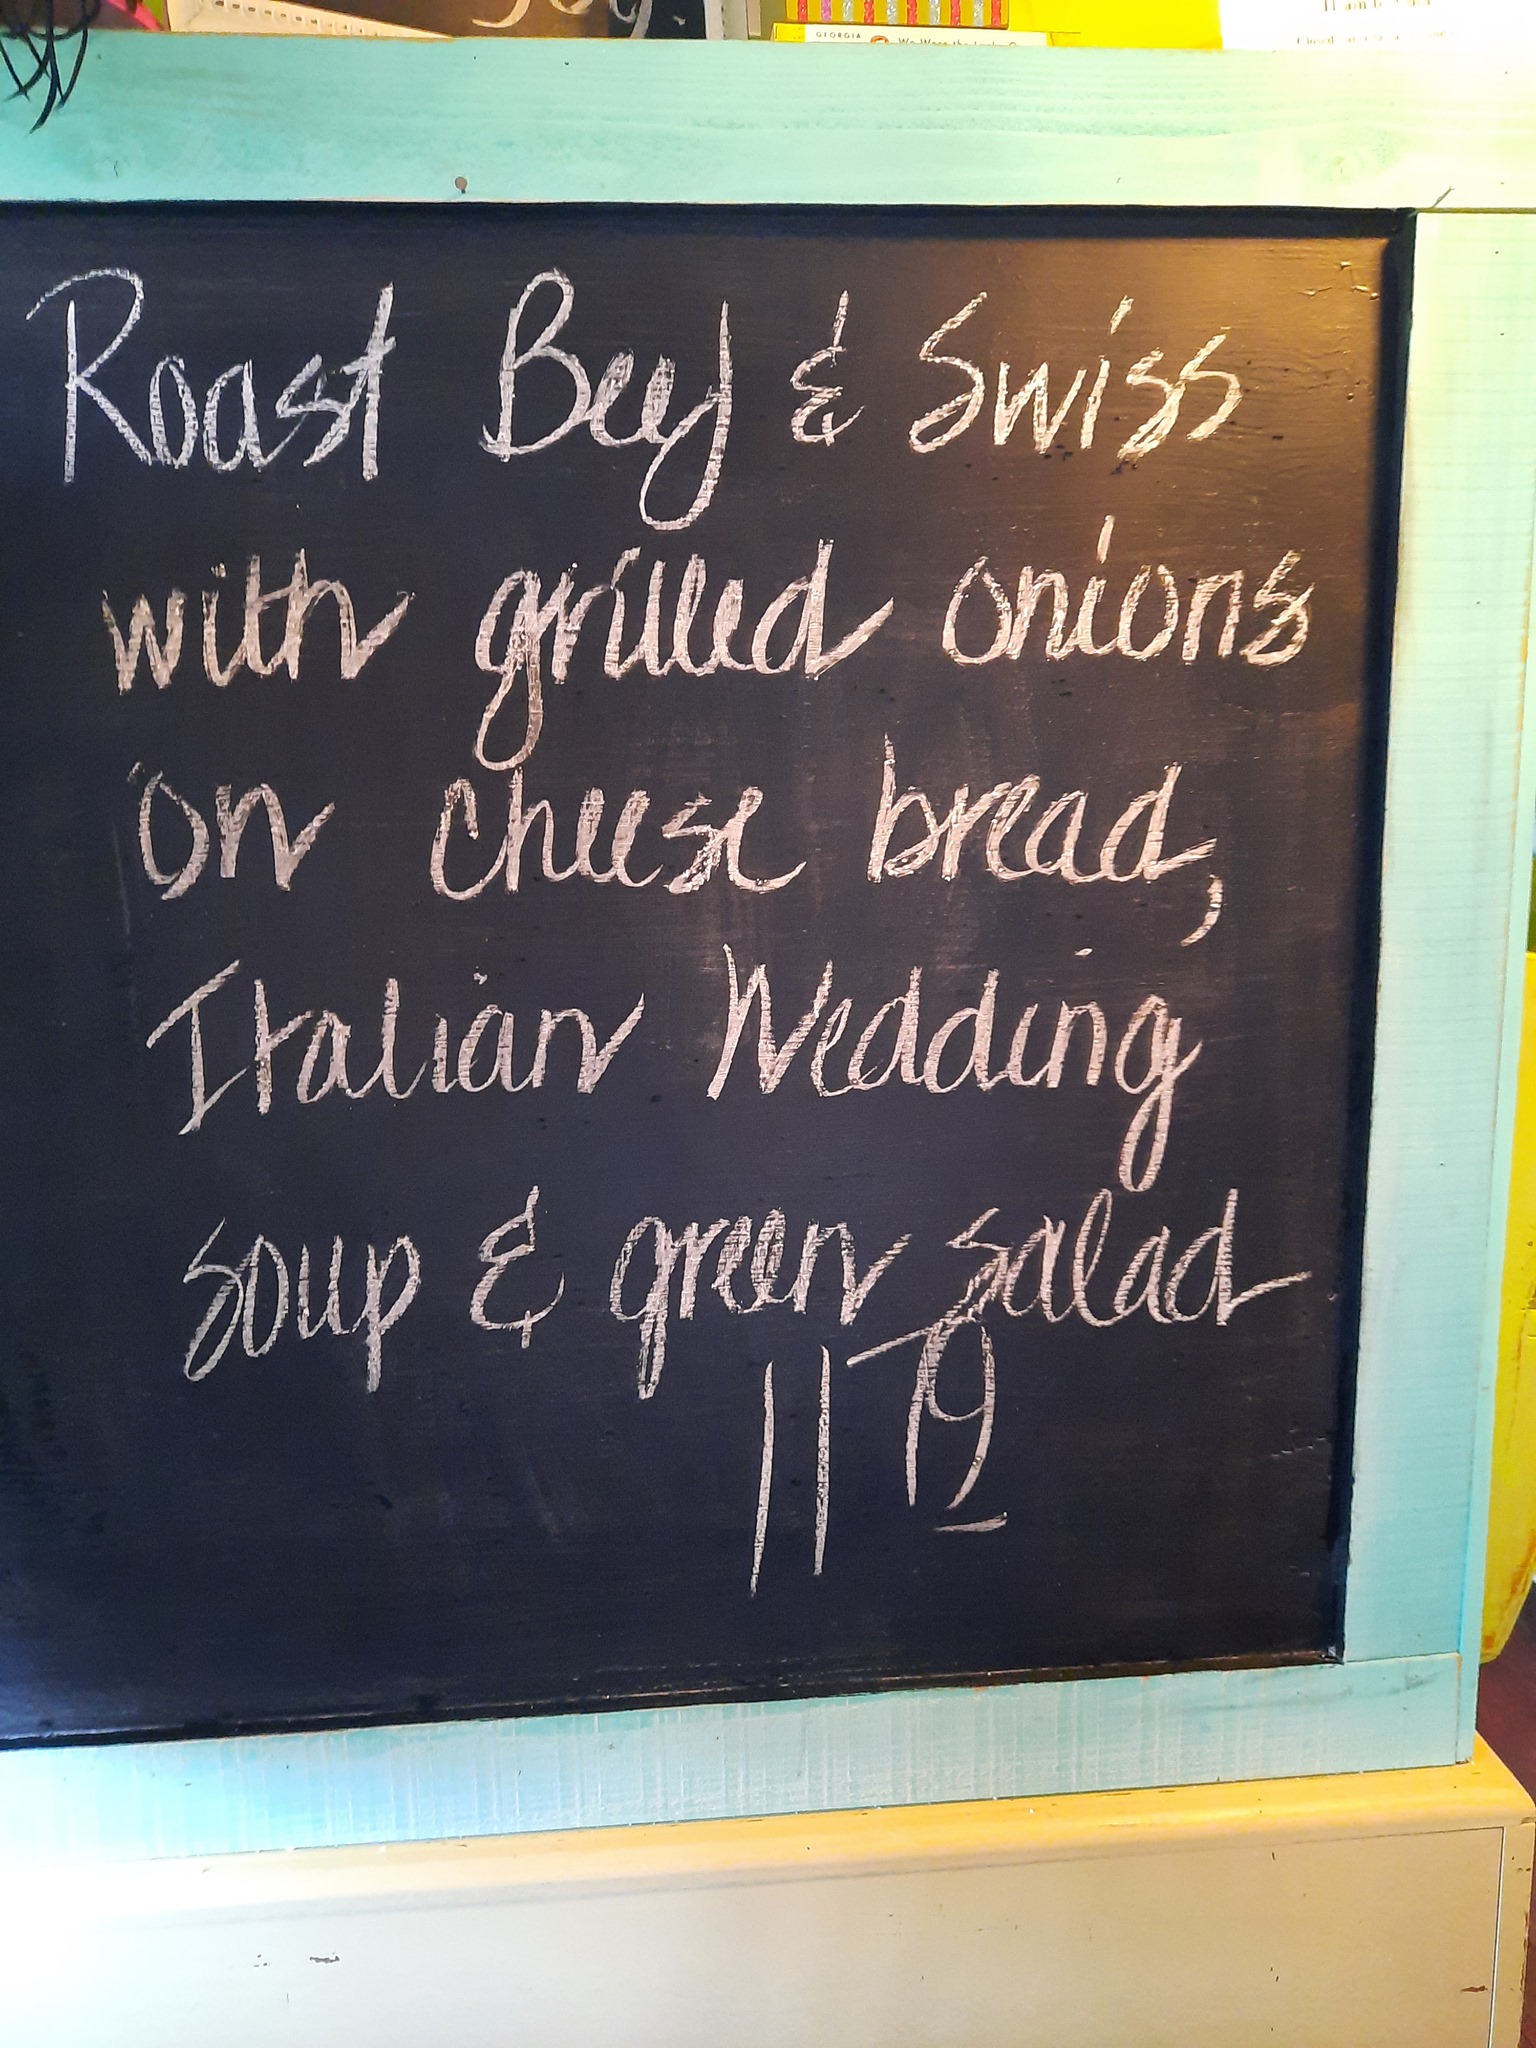 GEORGIA
Roast Beef & Swiss
with grilled onions
on cheese bread,
Italian Wedding
soup & green salad
11 79